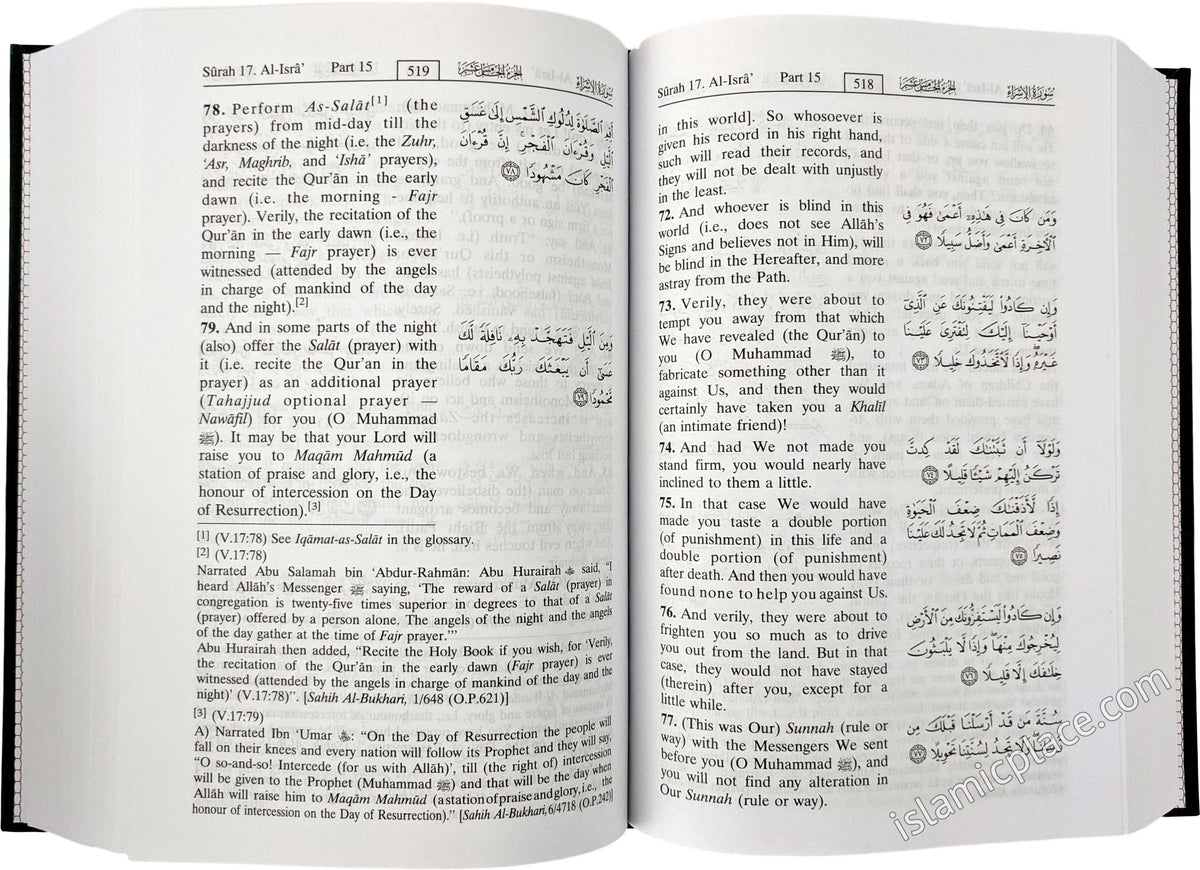 Sûrah 17. Al-Isrâ’ Part 15 518 الجزء الخامس عشر سورة الإسراء
in this world]. So whosoever is
given his record in his right hand,
such will read their records, and
they will not be dealt with unjustly
in the least.
72. And whoever is blind in this
world (i.e., does not see Allâh's
Signs and believes not in Him), will
be blind in the Hereafter, and more
astray from the Path.
وَمَن كَانَ فِي هَٰذِهِۦٓ أَعْمَىٰ فَهُوَ فِي
ٱلْـَٔاخِرَةِ أَعْمَىٰ وَأَضَلُّ سَبِيلًا ﴿٧٢﴾
73. Verily, they were about to
tempt you away from that which
We have revealed (the Qur’ân) to
you (O Muhammad ﷺ), to
fabricate something other than it
against Us, and then they would
certainly have taken you a Khalîl
(an intimate friend)!
وَإِن كَادُوا۟ لَيَفْتِنُونَكَ عَنِ ٱلَّذِىٓ
أَوْحَيْنَآ إِلَيْكَ لِتَفْتَرِىَ عَلَيْنَا
غَيْرَهُۥ وَإِذًا لَّٱتَّخَذُوكَ خَلِيلًا ﴿٧٣﴾
74. And had We not made you
stand firm, you would nearly have
inclined to them a little.
وَلَوْلَآ أَن ثَبَّتْنَٰكَ لَقَدْ كِدتَّ
تَرْكَنُ إِلَيْهِمْ شَيْـًٔا قَلِيلًا ﴿٧٤﴾
75. In that case We would have
made you taste a double portion
(of punishment) in this life and a
double portion (of punishment)
after death. And then you would have
found none to help you against Us.
إِذًا لَّأَذَقْنَٰكَ ضِعْفَ ٱلْحَيَوٰةِ
وَضِعْفَ ٱلْمَمَاتِ ثُمَّ لَا تَجِدُ لَكَ عَلَيْنَا
نَصِيرًا ﴿٧٥﴾
76. And verily, they were about to
frighten you so much as to drive
you out from the land. But in that
case, they would not have stayed
(therein) after you, except for a
little while.
وَإِن كَادُوا۟ لَيَسْتَفِزُّونَكَ مِنَ ٱلْأَرْضِ
لِيُخْرِجُوكَ مِنْهَا وَإِذًا لَّا يَلْبَثُونَ
خِلَٰفَكَ إِلَّا قَلِيلًا ﴿٧٦﴾
77. (This was Our) Sunnah (rule or
way) with the Messengers We sent
before you (O Muhammad ﷺ), and
you will not find any alteration in
Our Sunnah (rule or way).
سُنَّةَ مَن قَدْ أَرْسَلْنَا قَبْلَكَ مِن
رُّسُلِنَا وَلَا تَجِدُ لِسُنَّتِنَا تَحْوِيلًا ﴿٧٧﴾
Sûrah 17. Al-Isrâ’ Part 15 519 الجزء الخامس عشر سورة الإسراء
78. Perform As-Salât[1] (the
prayers) from mid-day till the
darkness of the night (i.e. the Zuhr,
‘Asr, Maghrib, and ‘Ishâ’ prayers),
and recite the Qur’ân in the early
dawn (i.e. the morning - Fajr
prayer). Verily, the recitation of the
Qur’ân in the early dawn (i.e., the
morning — Fajr prayer) is ever
witnessed (attended by the angels
in charge of mankind of the day
and the night).[2]
أَقِمِ ٱلصَّلَوٰةَ لِدُلُوكِ ٱلشَّمْسِ إِلَىٰ غَسَقِ
ٱلَّيْلِ وَقُرْءَانَ ٱلْفَجْرِ إِنَّ قُرْءَانَ
ٱلْفَجْرِ كَانَ مَشْهُودًا ﴿٧٨﴾
79. And in some parts of the night
(also) offer the Salât (prayer) with
it (i.e. recite the Qur’an in the
prayer) as an additional prayer
(Tahajjud optional prayer —
Nawâfil) for you (O Muhammad
ﷺ). It may be that your Lord will
raise you to Maqâm Mahmûd (a
station of praise and glory, i.e., the
honour of intercession on the Day
of Resurrection).[3]
وَمِنَ ٱلَّيْلِ فَتَهَجَّدْ بِهِۦ نَافِلَةً لَّكَ
عَسَىٰٓ أَن يَبْعَثَكَ رَبُّكَ مَقَامًا
مَّحْمُودًا ﴿٧٩﴾
[1] (V.17:78) See Iqâmat-as-Salât in the glossary.
[2] (V.17:78)
Narrated Abu Salamah bin ‘Abdur-Rahmân: Abu Hurairah said, “I
heard Allâh's Messenger ﷺ saying, ‘The reward of a Salât (prayer) in
congregation is twenty-five times superior in degrees to that of a Salât
(prayer) offered by a person alone. The angels of the night and the angels
of the day gather at the time of Fajr prayer.’”
Abu Hurairah then added, “Recite the Holy Book if you wish, for ‘Verily,
the recitation of the Qur’ân in the early dawn (Fajr prayer) is ever
witnessed (attended by the angels in charge of mankind of the day and the
night)’ (V.17:78)”. [Sahih Al-Bukhari, 1/648 (O.P.621)]
[3] (V.17:79)
A) Narrated Ibn ‘Umar: “On the Day of Resurrection the people will
fall on their knees and every nation will follow its Prophet and they will say,
“O so-and-so! Intercede (for us with Allâh)’, till (the right of) intercession
will be given to the Prophet (Muhammad ﷺ) and that will be the day when
Allâh will raise him to Maqâm Mahmûd (a station of praise and glory, i.e., the
honour of intercession on the Day of Resurrection).” [Sahih Al-Bukhari, 6/4718 (O.P.242)]
islamicplace.com